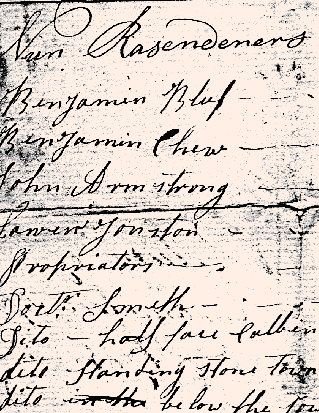 Nun Rasendeners
Benjamin Bluf -
Benjamin Chew -
John Armstrong
Lawer Jonston
Propriators -
Doctr Smeth -
Dito - half face
dito standing stone town
dito in the below the